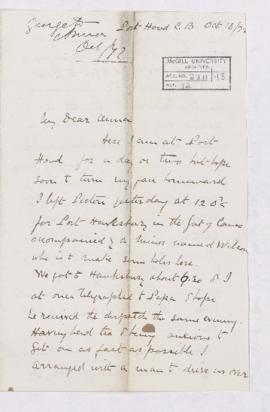 George to
Anna
Oct /72
Port Hood C.B. Oct 12/72
McGILL UNIVERSITY
ARCHIVES
ACC. NO. 2211
REF. 12
My Dear Anna
Here I am at Port
Hood for a day or two but hope
soon to turn my face homeward
I left Pictou yesterday at 12 O'c
for Port Hawksbury in the Gut of Canso
accompanied by a miner named Wilson
who is to make some holes here.
We got to Hawksbury about 6.30 & I
at once telegraphed to Papa I hope
he received the dispatch the same evening.
Having had tea & being anxious to
get on as fast as possible I
arranged with a man to drive us over